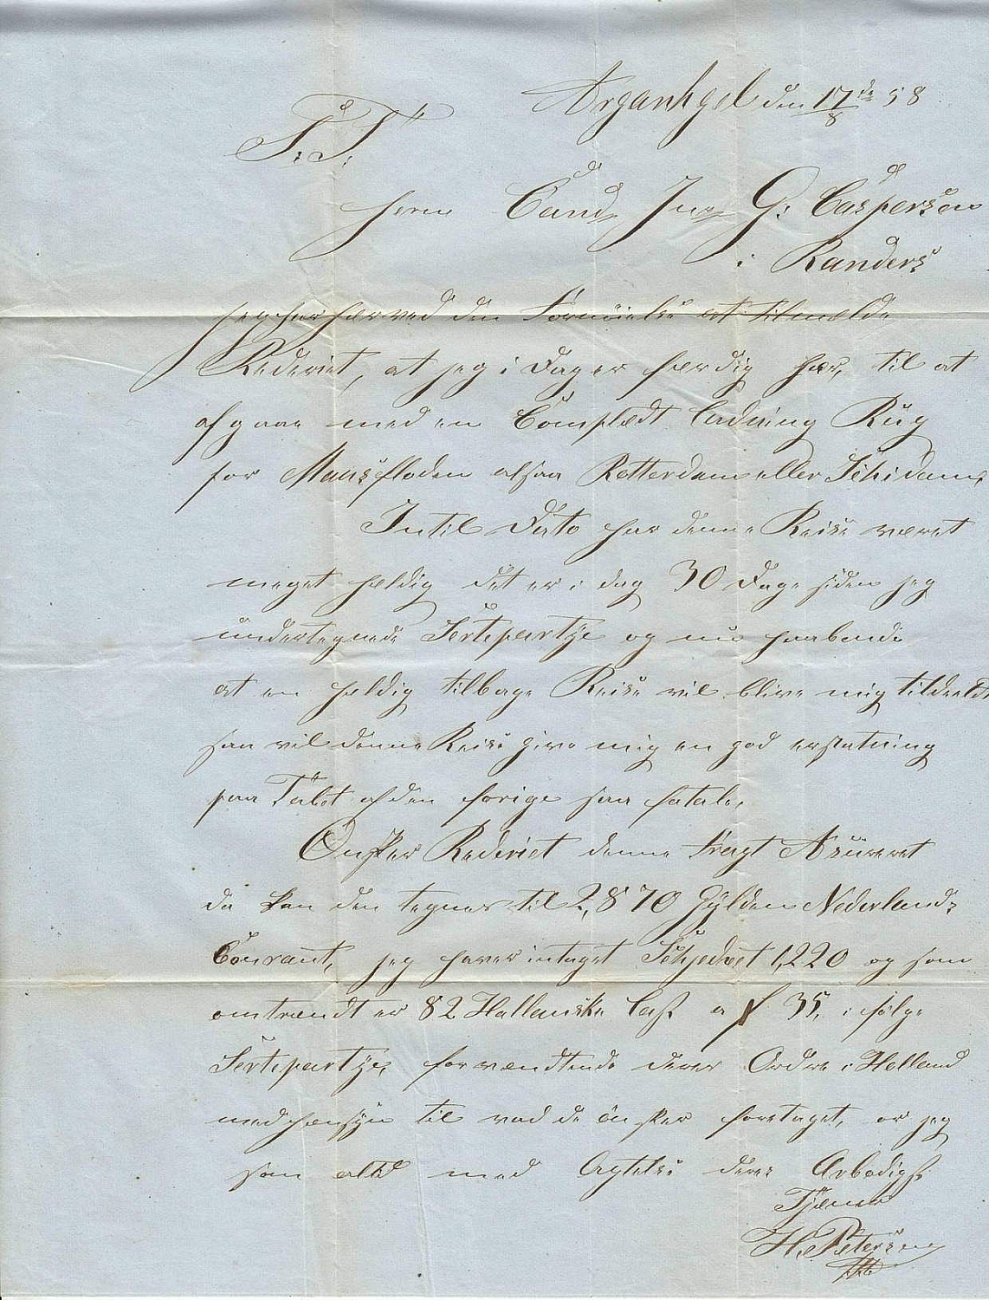 Arganhgel den 17/8 58
S. T.
Herrn Cand Jur G: Caspersen
i Randers
jeg har herved den Fornöielse at tilmelde
Rederiet, at jeg i Dag er færdig her, til at
afgaae med en Complædt Ladning Rug
for Maasfloden alsaa Rotterdam eller Schidam.
Intil Dato har denne Reise været
meget heldig det er i dag 30 Dage siden jeg
undertegnede Sertepartje og nu haabende
at en heldig tilbage Reise vil blive mig tildeeldt
saa vil denne Reise give mig en god erstatning
paa Tabet af den forige saa fatale.
Önsker Rederiet denne Fragt Asüreret
da kan den tegnes til 2,870 Gylden Nederlands
Courant, jeg haver intaget Schjedvet 1,220 og som
omtrændt er 82 Hollanske Last a f 35, i følge
Sertepartje, forvændtende deres Ordre i Holland
med hensyn til vad de önsker foretaget, er jeg
som altid med Agtelse deres Arbødigst
Tjæner
H. Petersen